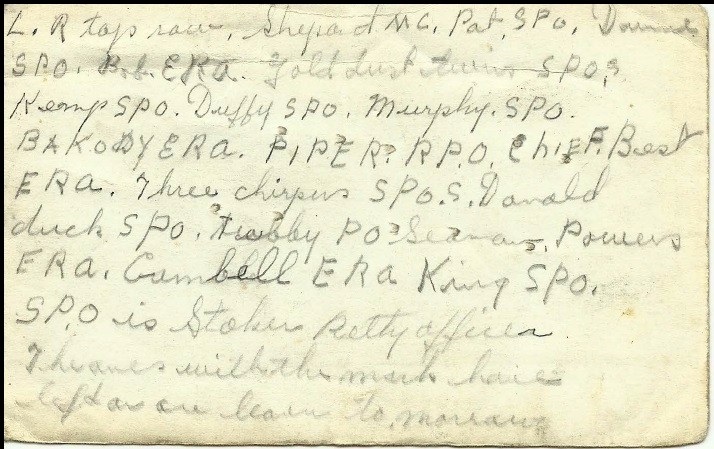 L. R top row, Shepard MC. Pat, SPO. Downs
SPO. Bob. ERA. Golddust twins SPO,s
Kemp SPO. Duffy SPO. Murphy. SPO.
BAKODY ERA. PIPER? RPO. Chief. Best
ERA. Three chirpers SPO.S. Donald
duck SPO. tubby PO? Seaman. Powers
ERA. Cambell ERA King SPO.
SPO is Stoker Petty officer
The ones with the mark have
left or are leavin to morrow